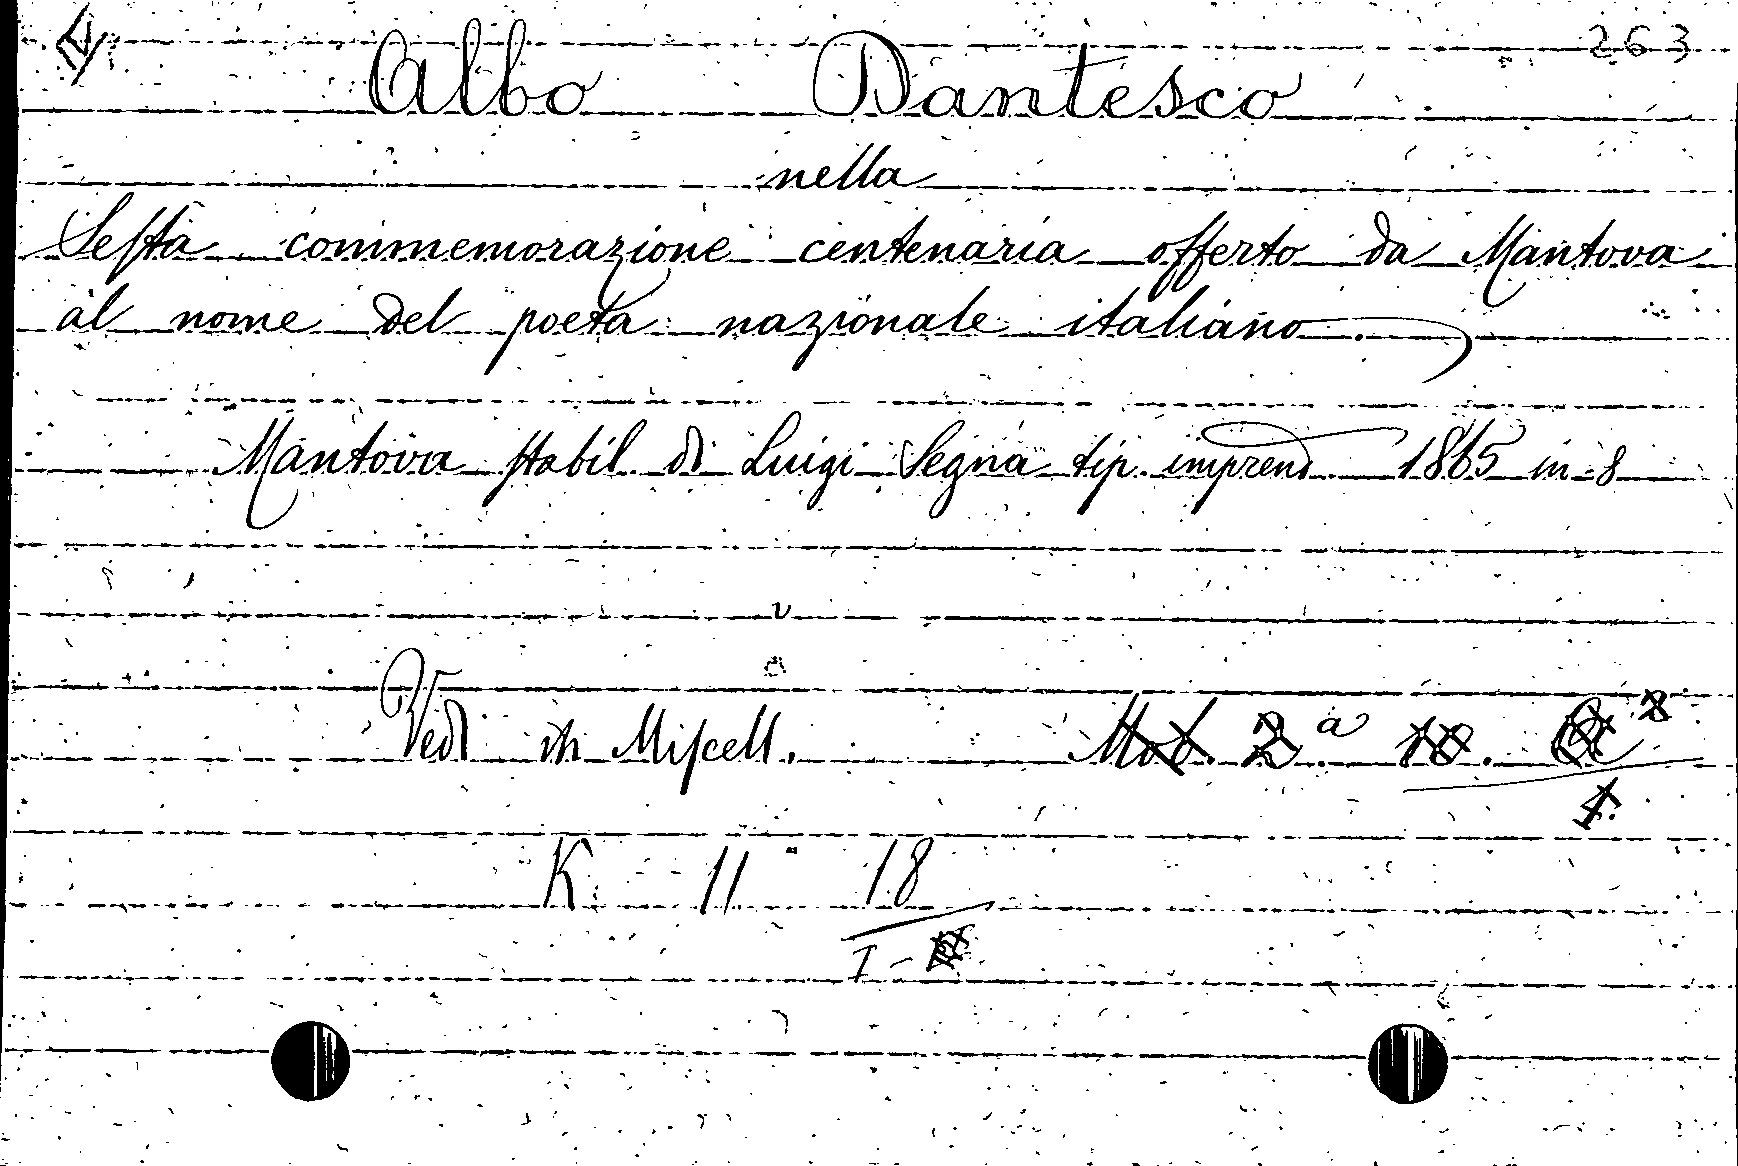 263
Albo Dantesco
nella
Sesta commemorazione centenaria offerto da Mantova
al nome del poeta nazionale italiano.
Mantova stabil. di Luigi Segna tip. imprend. 1865 in-8
Vedi in Miscell. Mob. 2.ª 10.
K 11 18
I -